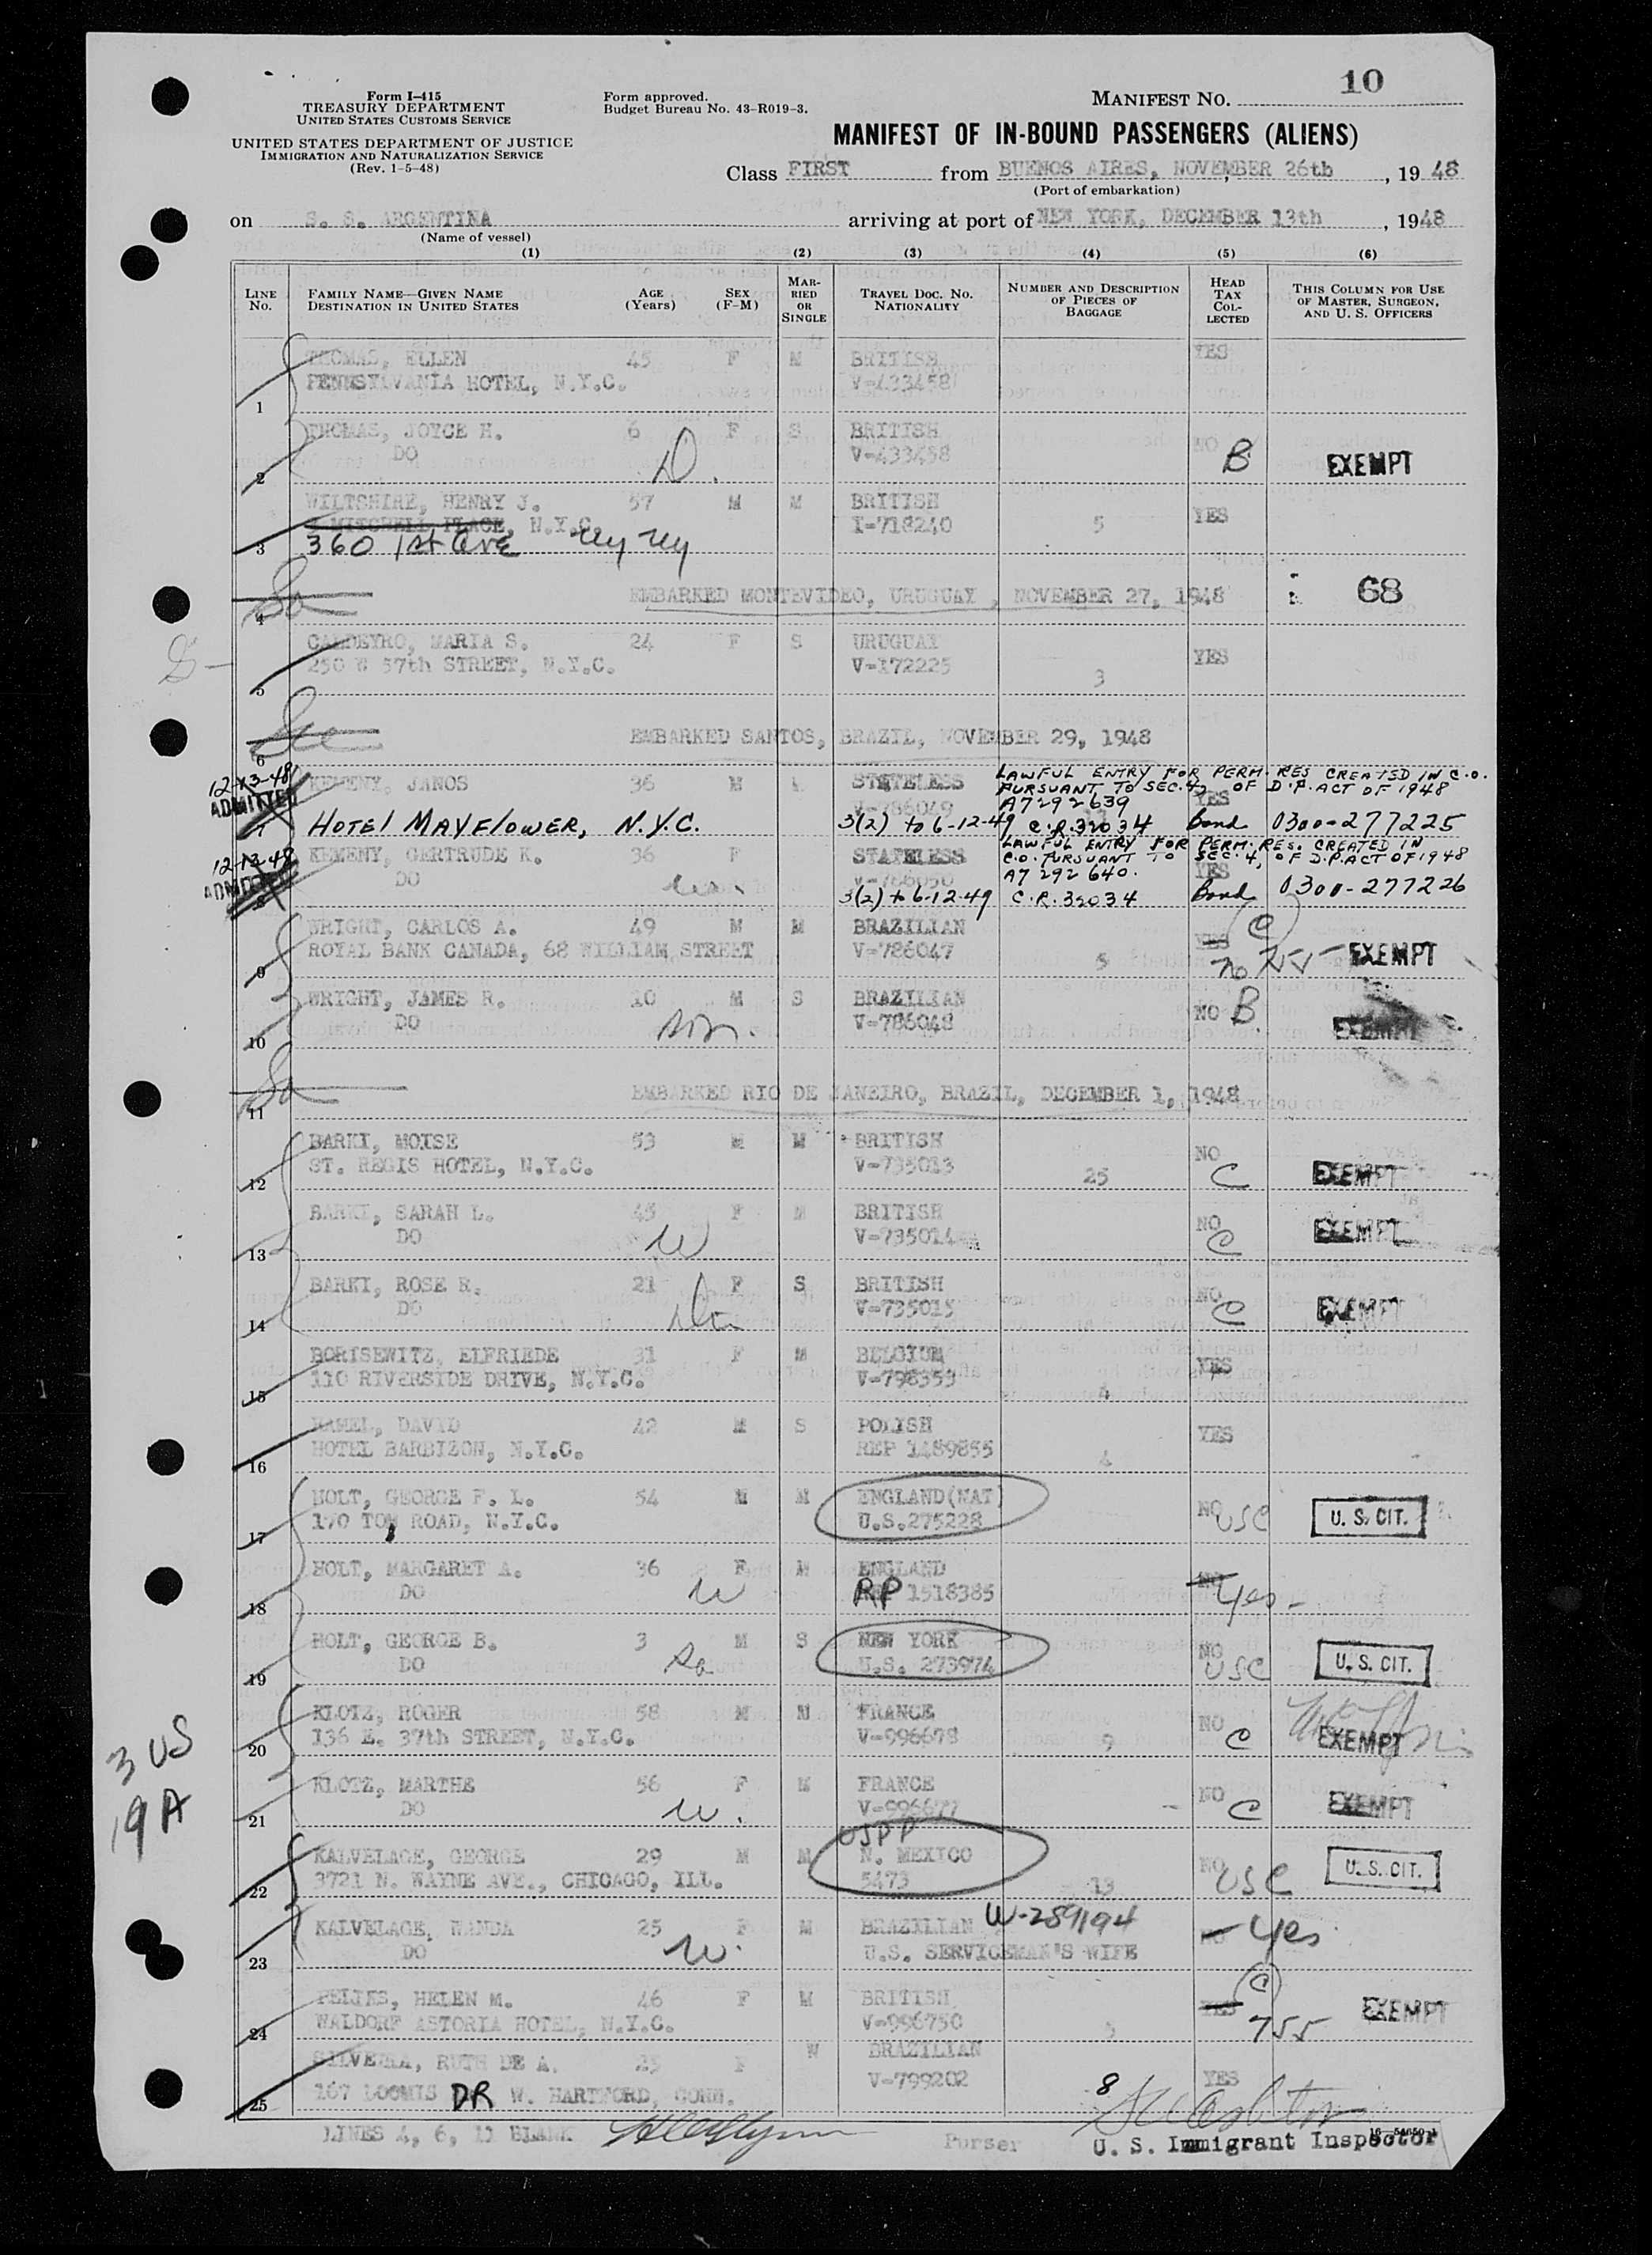 10
Form I-415
TREASURY DEPARTMENT
UNITED STATES CUSTOMS SERVICE
Form approved.
Budget Bureau No. 43-R019-3.
MANIFEST NO.
UNITED STATES DEPARTMENT OF JUSTICE
IMMIGRATION AND NATURALIZATION SERVICE
(Rev. 1-5-48)
MANIFEST OF IN-BOUND PASSENGERS (ALIENS)
Class FIRST from BUENOS AIRES, NOVEMBER 26th, 1948
(Port of embarkation)
on S. S. ARGENTINA arriving at port of NEW YORK, DECEMBER 13th, 1948
(Name of vessel)
(1) (2) (3) (4) (5) (6)
LINE No. FAMILY NAME—GIVEN NAME DESTINATION IN UNITED STATES AGE (Years) SEX (F-M) MARRIED OR SINGLE TRAVEL DOC. NO. NATIONALITY NUMBER AND DESCRIPTION OF PIECES OF BAGGAGE HEAD TAX COLLECTED THIS COLUMN FOR USE OF MASTER, SURGEON, AND U. S. OFFICERS
THOMAS, ELLEN 45 F M BRITISH YES
PENNSYLVANIA HOTEL, N.Y.C. V-433458
1
THOMAS, JOYCE H. 6 F S BRITISH NO
DO D. V-433458 B EXEMPT
2
WILTSHIRE, HENRY J. 57 M M BRITISH YES
MITCHELL PLACE, N.Y.C. I-718240 5
3 360 1st Ave NY NY
EMBARKED MONTEVIDEO, URUGUAY , NOVEMBER 27, 1948 68
4
CALDEYRO, MARIA S. 24 F S URUGUAY YES
250 W 57th STREET, N.Y.C. V-172225 3
5
EMBARKED SANTOS, BRAZIL, NOVEMBER 29, 1948
6
12-13-48 KEMENY, JANOS 36 M STATELESS LAWFUL ENTRY FOR PERM. RES CREATED IN C.O.
ADMITTED V-786049 PURSUANT TO SEC. 4, OF D.P. ACT OF 1948 YES
A7292639
7 HOTEL MAYFLOWER, N.Y.C. 3(2) to 6-12-49 C.R. 32034 Bond 0300-277225
12-13-48 KEMENY, GERTRUDE K. 36 F STATELESS LAWFUL ENTRY FOR PERM. RES. CREATED IN
ADMITTED DO V-786050 C.O. PURSUANT TO SEC. 4, OF D.P. ACT OF 1948 YES
A7 292 640.
8 3(2) to 6-12-49 C.R. 32034 Bond 0300-277226
WRIGHT, CARLOS A. 49 M M BRAZILIAN YES C
ROYAL BANK CANADA, 68 WILLIAM STREET V-786047 5 no 755 EXEMPT
9
WRIGHT, JAMES R. 10 M S BRAZILIAN NO B
DO son. V-786048 EXEMPT
10
EMBARKED RIO DE JANEIRO, BRAZIL, DECEMBER 1, 1948
11
BARKI, MOISE 53 M M BRITISH NO
ST. REGIS HOTEL, N.Y.C. V-735013 25 C EXEMPT
12
BARKI, SARAH L. 45 F M BRITISH NO
DO W V-735014 C EXEMPT
13
BARKI, ROSE R. 21 F S BRITISH NO
DO V-735015 C EXEMPT
14
BORISEWITZ, ELFRIEDE 31 F M BELGIUM YES
110 RIVERSIDE DRIVE, N.Y.C. V-798353 4
15
HAMEL, DAVID 42 M S POLISH YES
HOTEL BARBIZON, N.Y.C. REP 1489855 4
16
HOLT, GEORGE F. L. 54 M M ENGLAND(NAT) NO
170 TOM ROAD, N.Y.C. U.S.275228 USC U. S. CIT.
17
HOLT, MARGARET A. 36 F M ENGLAND NO
DO W RP 1518385 Yes
18
HOLT, GEORGE B. 3 M S NEW YORK NO
DO So U.S. 273974 USC U. S. CIT.
19
KLOTZ, ROGER 58 M M FRANCE NO
136 E. 37th STREET, N.Y.C. V-996678 9 C EXEMPT
20
3 US
KLOTZ, MARTHE 56 F M FRANCE NO
DO W. V-996677 C EXEMPT
21
19 A
USPP
KALVELAGE, GEORGE 29 M M N. MEXICO NO
3721 N. WAYNE AVE., CHICAGO, ILL. 5473 13 USC U. S. CIT.
22
KALVELAGE, WANDA 25 F M BRAZILIAN W-289194 NO Yes
DO W. U.S. SERVICEMAN'S WIFE
23
PELTES, HELEN M. 46 F M BRITISH YES C
WALDORF ASTORIA HOTEL, N.Y.C. V-996750 5 755 EXEMPT
24
SILVEIRA, RUTH DE A. 25 F W BRAZILIAN YES
167 LOOMIS DR W. HARTFORD, CONN. V-799202 8
25
LINES 4, 6, 11 BLANK Purser U. S. Immigrant Inspector